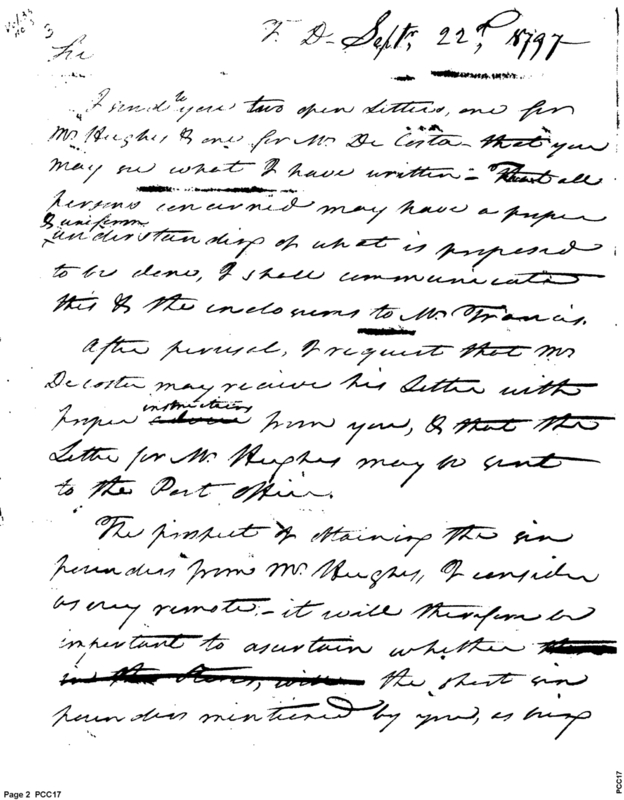 T. D- Septr. 22d, 1797
3
Sir
I send to you two open Letters, one for
Mr Hughes & one for Mr De Costa - that you
may see what I have written - That all
persons concerned may have a proper
& uniform
understanding of what is proposed
to be done, I shall communicate
this & the inclosures to Mr Francis.
After perusal, I request that Mr
Decosta may receive his Letter with
instructions
proper from you, & that the
Letter for Mr Hughes may be sent
to the Post Office.
The prospect of obtaining the
from Mr Hughes, I consider
as very remote - it will therefore be
important to ascertain whether
in the Stores, the short
mentioned by you, as being
Page 2 PCC17
PCC17